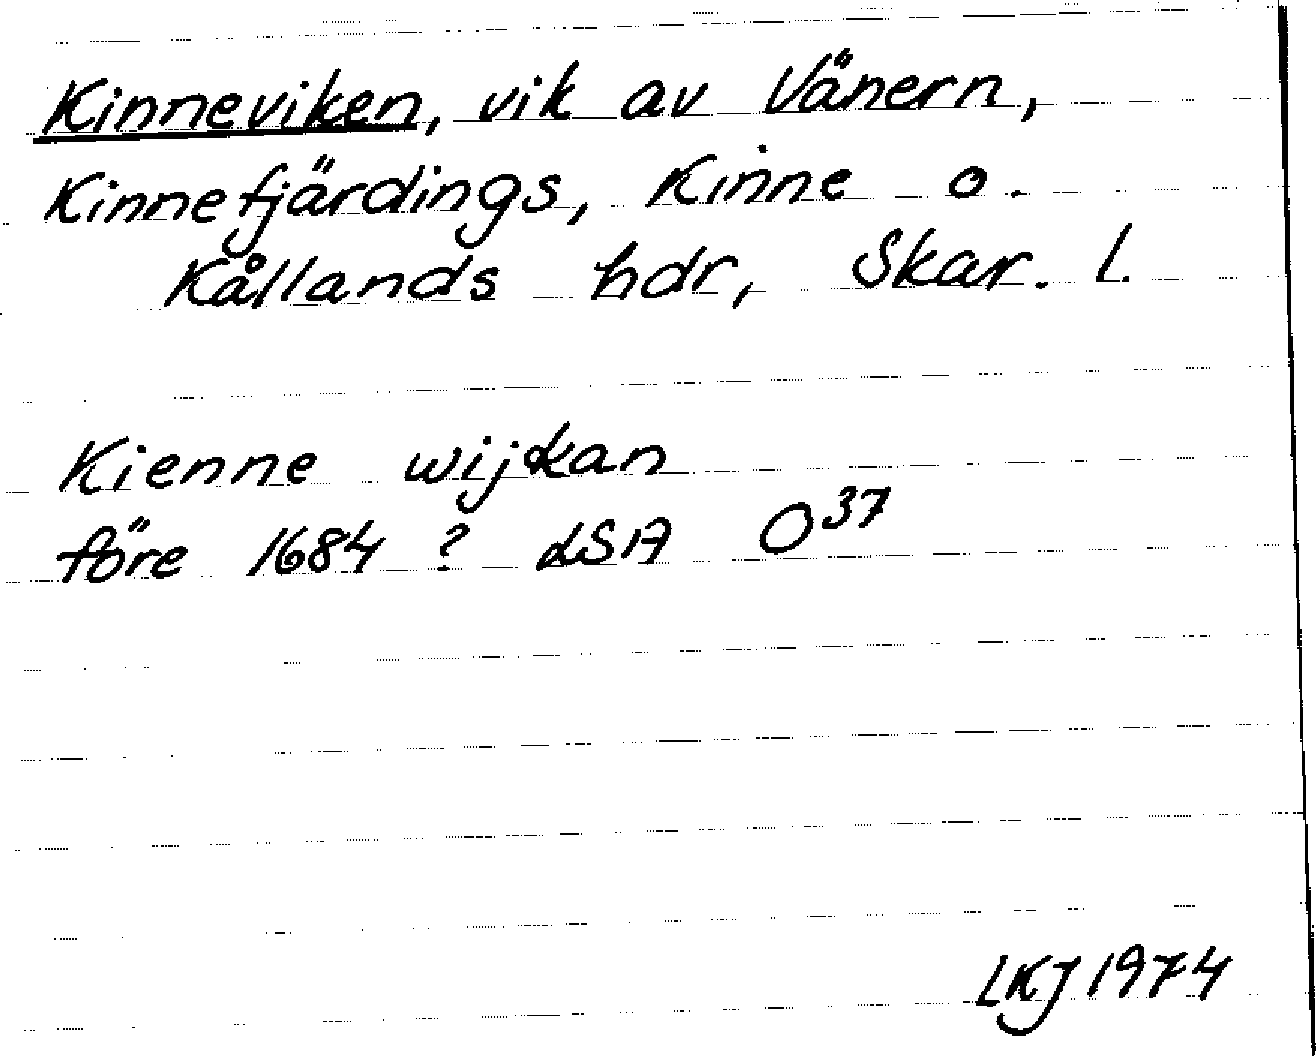 Kinneviken, vik av Vänern,
Kinnefjärdings, Kinne o.
Kållands hdr, Skar. l.
Kienne wijkan
före 1684 ? LSA O37
LKJ 1974